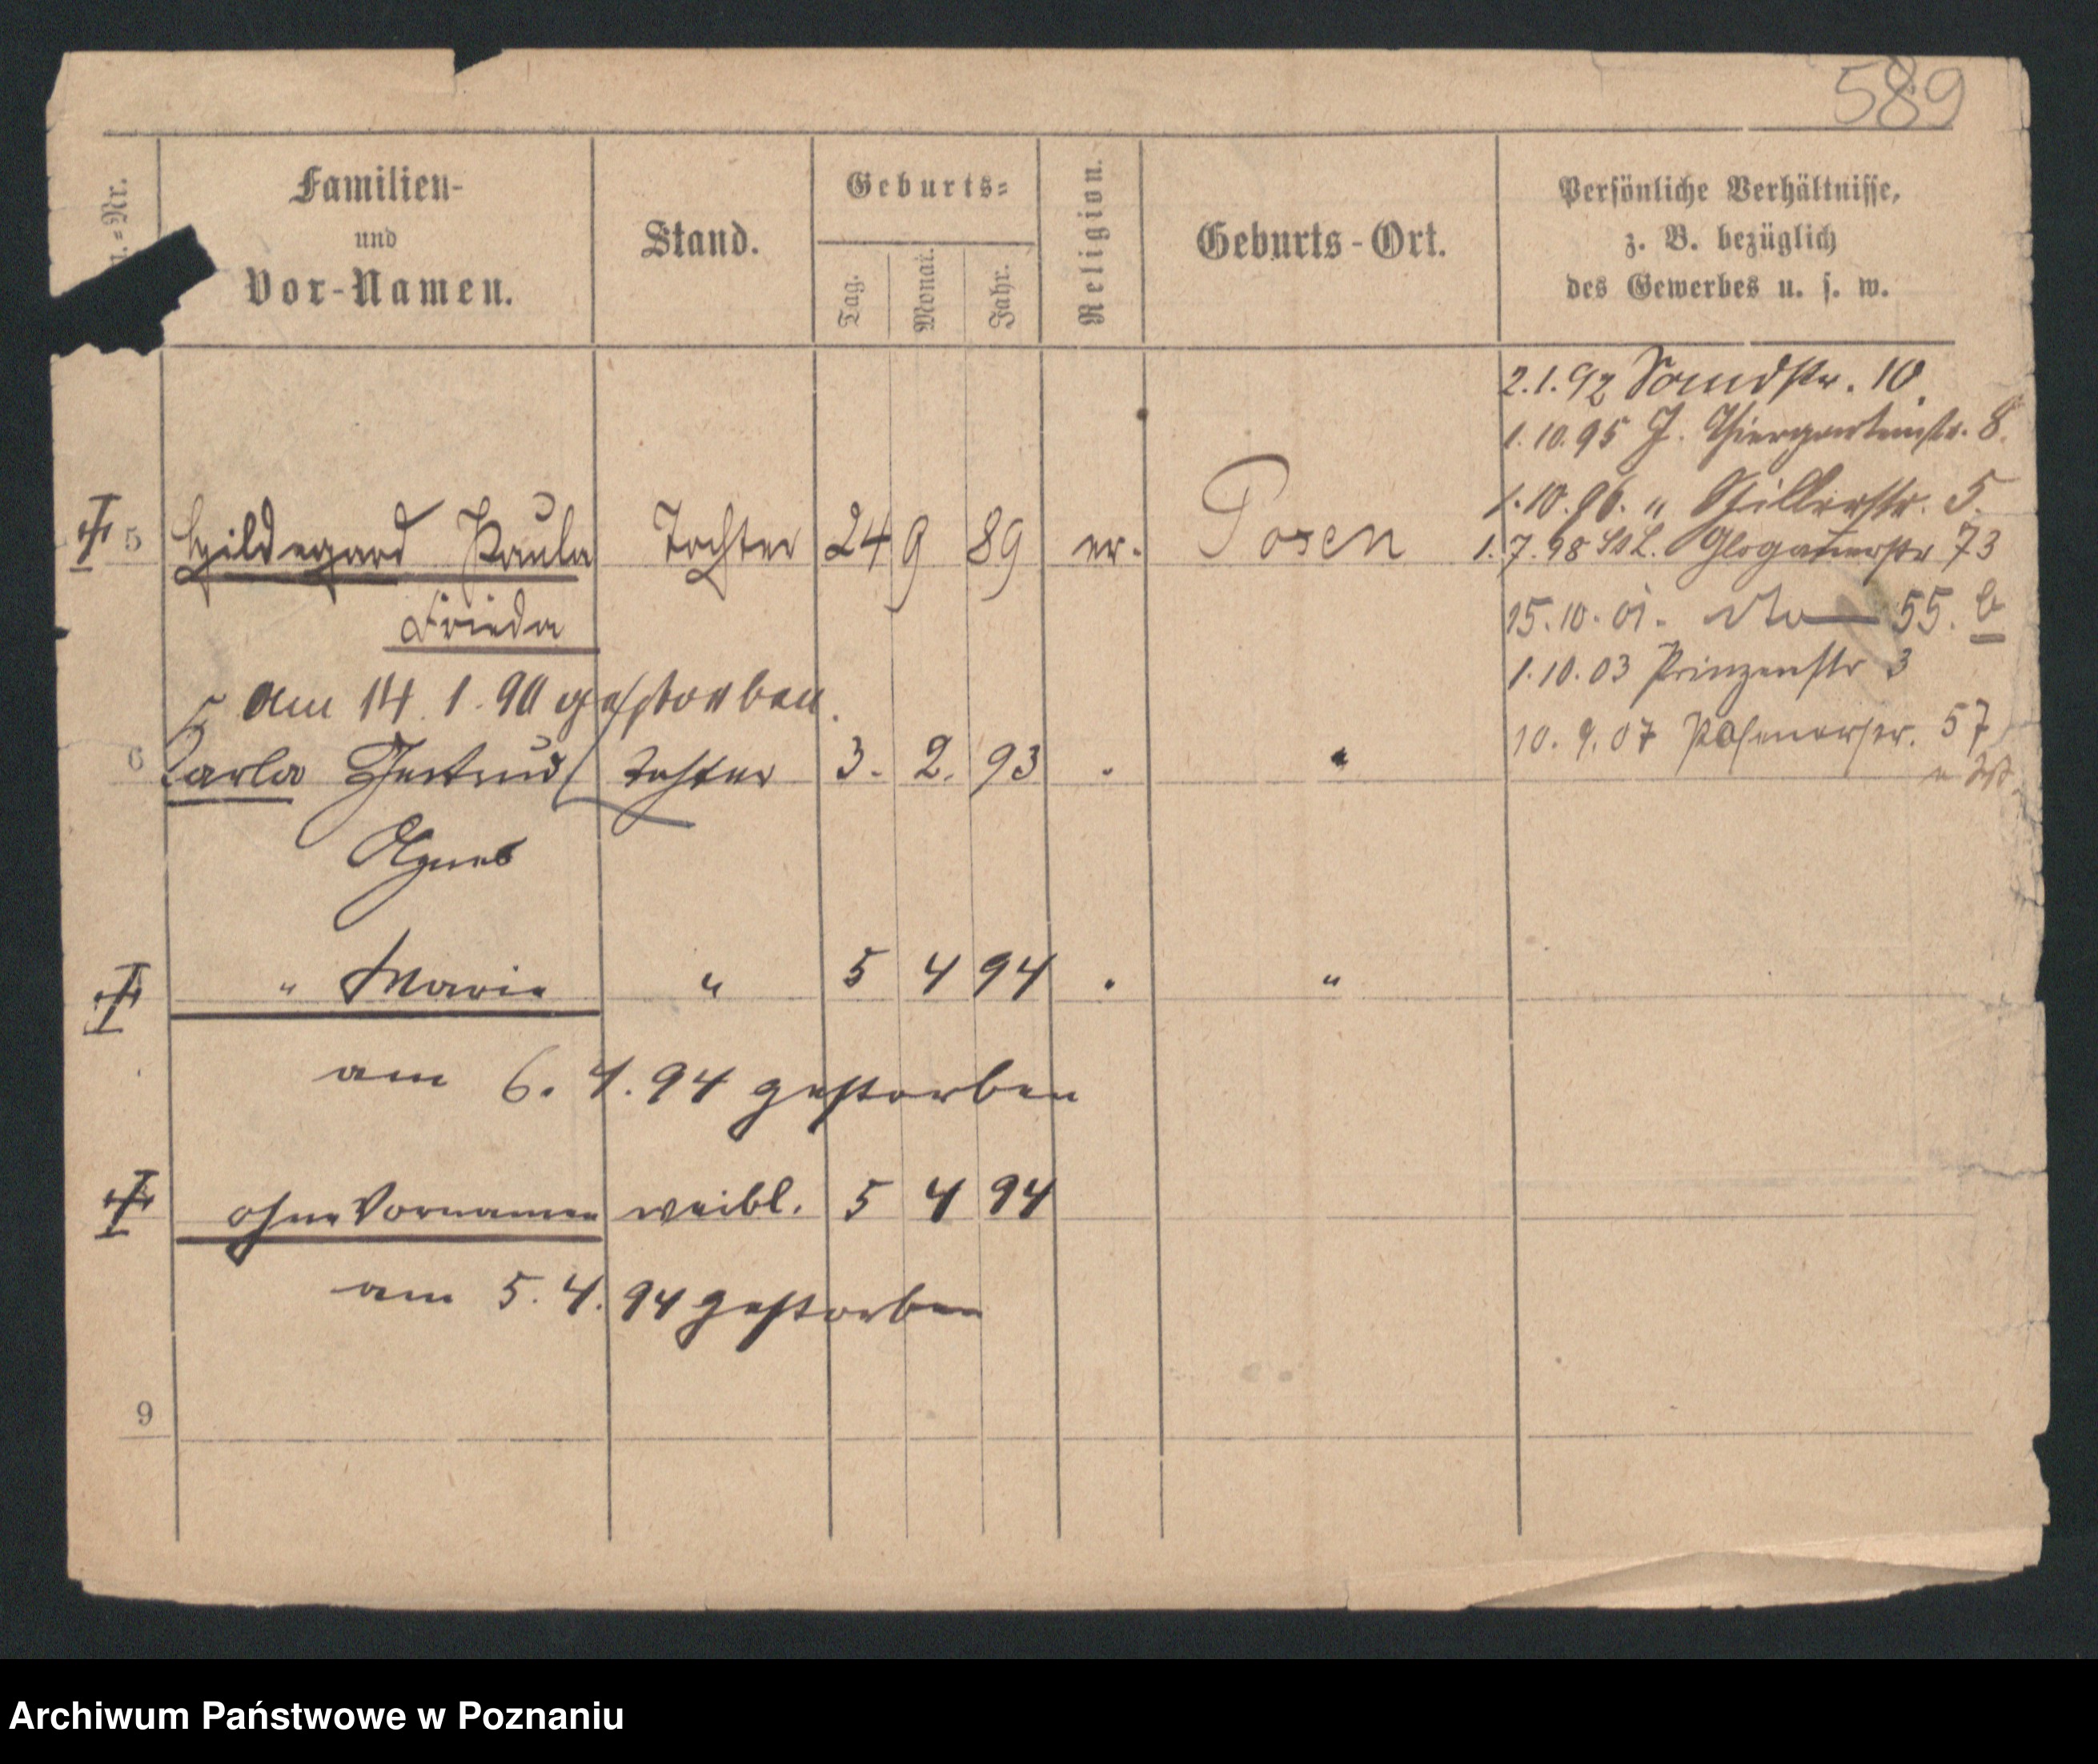 589
Nr.
Familien-
und
Vor-Namen.
Stand.
Geburts-
Tag.
Monat.
Jahr.
Religion.
Geburts-Ort.
Persönliche Verhältnisse,
z. B. bezüglich
des Gewerbes u. s. w.
2.1.92 10.
1.10.95 J. Thiergartenstr. 8.
1.10.96. " str. 5.
5 Hildegard Paula Tochter 24 9 89 ev. Posen
1.7.98 St L. Glogauerstr 73
Frieda
15.10.01. dto 55. b
1.10.03 Prinzenstr 3
am 14.1.90 gestorben.
10.9.07 Posenerstr. 57
6 Carla Gertrud Tochter 3. 2. 93 . "
Agnes
" Marie " 5 4 94 . "
am 6.4.94 gestorben
ohne Vornamen weibl. 5 4 94
am 5.4.94 gestorben
9
Archiwum Państwowe w Poznaniu